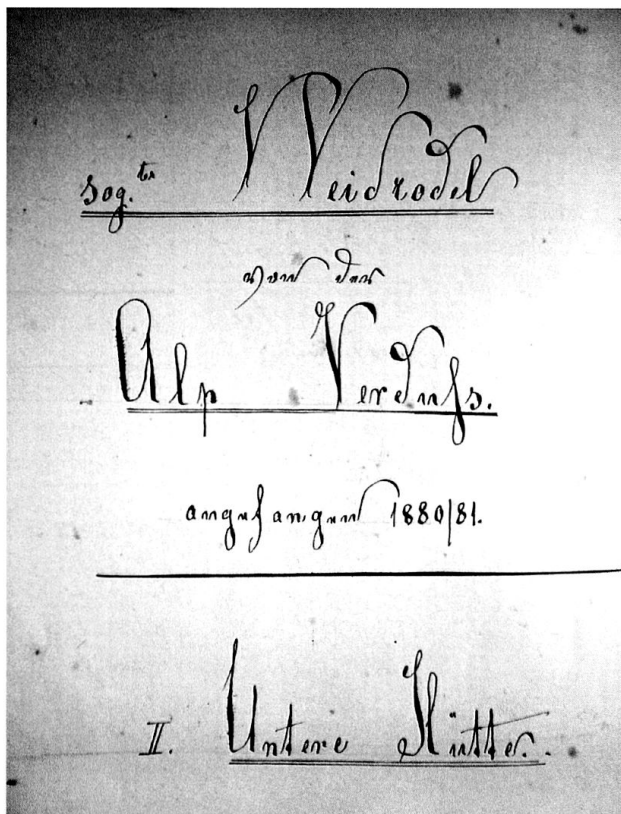 sog.te Weidrodel
von der
Alp Verdußs.
angefangen 1880/81.
II. Untere Hütte.